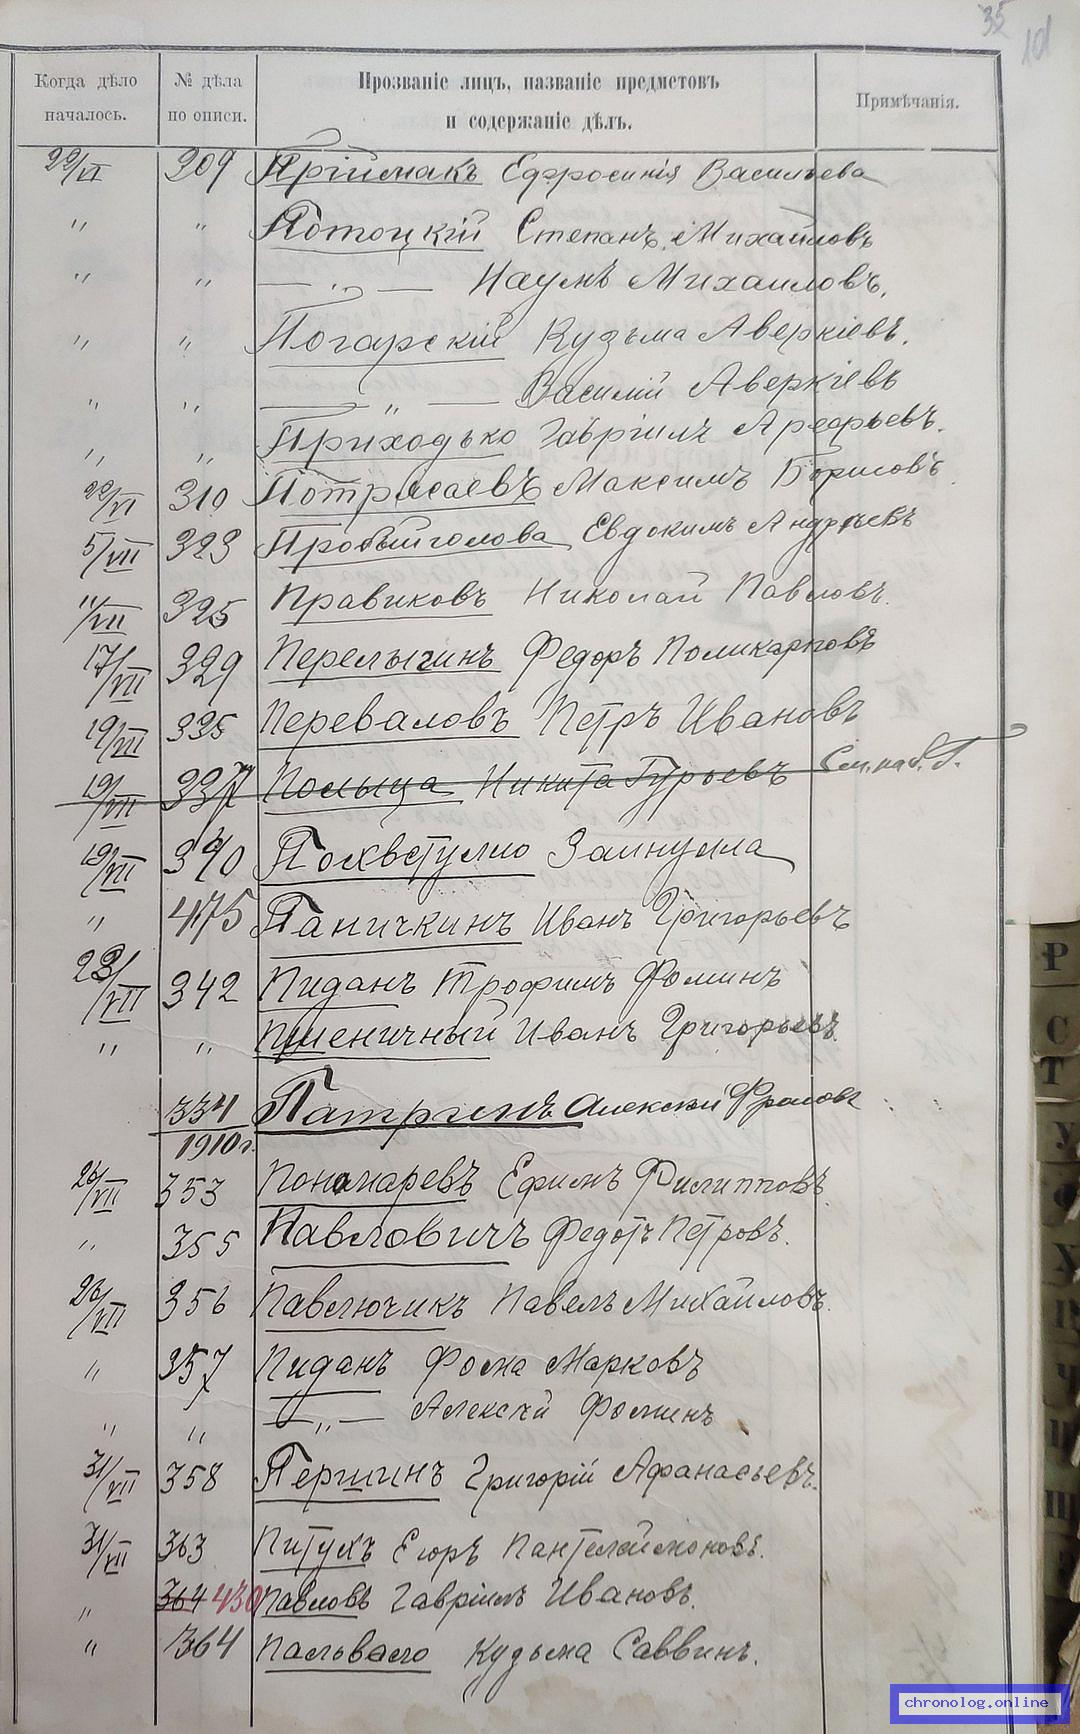 35 101
Когда дѣло началось. № дѣла по описи. Прозваніе лицъ, названіе предметовъ и содержаніе дѣлъ. Примѣчанія.
22/VI 309 Пріймакъ Ефросинія Васильева
" " Потоцкій Степанъ Михайловъ
" " — " — Наумъ Михаиловъ.
" " Погарскій Кузьма Аверкіевъ.
" " — " — Василій Аверкіевъ
" " Приходько Гавріилъ Арефьевъ.
22/VI 310 Потрясаевъ Максимъ Борисовъ
5/VII 323 Пробыйголова Евдокимъ Андреевъ
11/VII 325 Правиковъ Николай Павловъ.
17/VII 329 Перелыгинъ Федоръ Поликарповъ
19/VII 335 Переваловъ Петръ Ивановъ
19/VII 337 Польща Никита Гурьевъ См. на б. Г.
19/VII 340 Похвстулио Заинулла
" 475 Паничкинъ Иванъ Григорьевъ
23/VII 342 Пиданъ Трофимъ Фоминъ
" " Пшеничный Иванъ Григорьевъ
334 Патринъ Алексѣй Фроловъ
1910 г.
26/VII 353 Пономаревъ Ефимъ Филипповъ.
" 355 Павловичъ Федотъ Петровъ.
26/VII 356 Павлючикъ Павелъ Михайловъ.
" 357 Пиданъ Фома Марковъ
" " — " — Алексѣй Фоминъ
31/VII 358 Першинъ Григорій Афанасьевъ.
31/VII 363 Питухъ Егоръ Пантелеймоновъ.
" 364 430 Павловъ Гавріилъ Ивановъ.
" 364 Пальвало Кузьма Саввинъ.
Р
С
Т
У
Ф
Х
Ц
Ч
Ш
chronolog.online